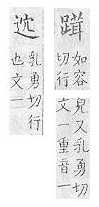 如容
切行
皃又乳勇切
文一重音一
乳勇切行
也文一